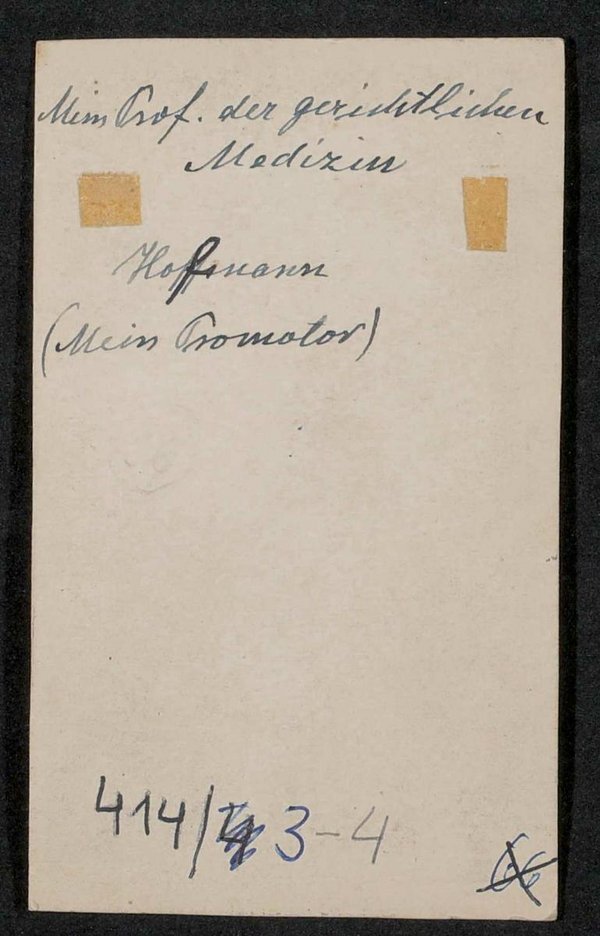 Mein Prof. der gerichtlichen
Medizin
Hoffmann
(Mein Promotor)
414/ 3-4
66